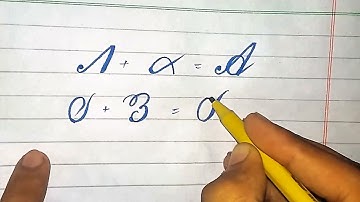 Λ + α = A
O + 3 = O